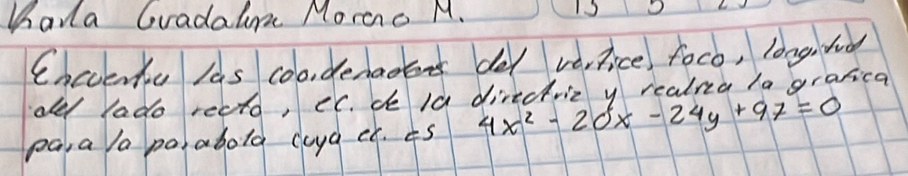 Karla Guadalupe Moreno M.
Encuentra las coordenadas del vertice, foco, longitud
del lado recto, ec. de la directriz y realiza la grafica
para la parabola cuya ec. es 4x² - 20x - 24y + 97 = 0